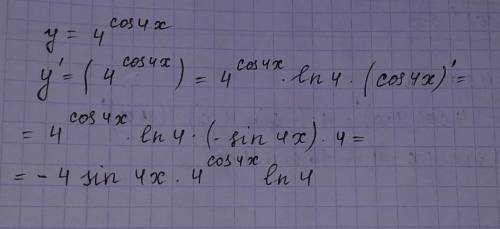 y = 4^{cos4x}
y' = (4^{cos4x}) = 4^{cos4x} · ln 4 · (cos4x)' =
= 4^{cos4x} · ln 4 · (- sin 4x) · 4 =
= - 4 sin 4x · 4^{cos4x} ln 4